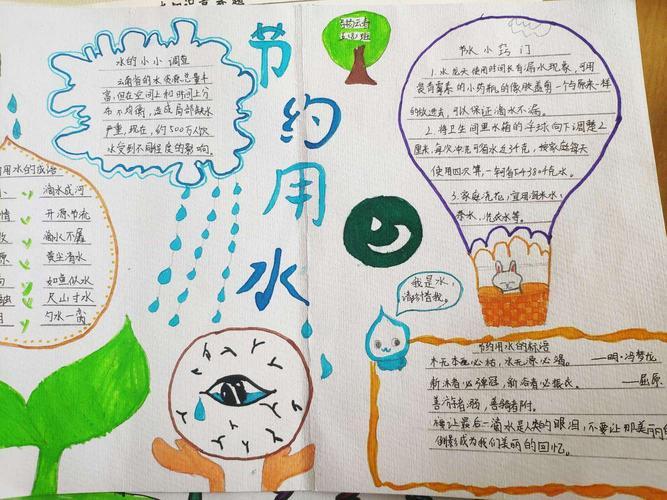 节
约
用
水
水的小小调查
云南省的水资源总量丰
富,但在空间上和时间上分
布不均衡,造成局部缺水
严重。现在,约500万人饮
水受到不同程度的影响。
用水的成语
滴水成河
开源节流
滴水不漏
黄尘清水
如鱼似水
尺山寸水
勺水一脔
节水小窍门
1.水龙头使用时间长有漏水现象,可用
装青霉素的小药瓶的橡胶盖剪一个与原来一样
的放进去,可以保证滴水不漏。
2.将卫生间里水箱的浮球向下调整2
厘米,每次冲洗可省水近3千克,按家庭每天
使用四次算,一年可节4380千克水。
3.家庭浇花,宜用淘米水、
茶水,洗衣水等。
我是水,
请珍惜我。
节约用水的标语
木无本必枯,水无源必竭。——明·冯梦龙
新沐者必弹冠,新浴者必振衣。——屈原
善游者溺,善骑者附。
别让最后一滴水是人类的眼泪,不要让那美丽的
倒影成为我们美丽的回忆。